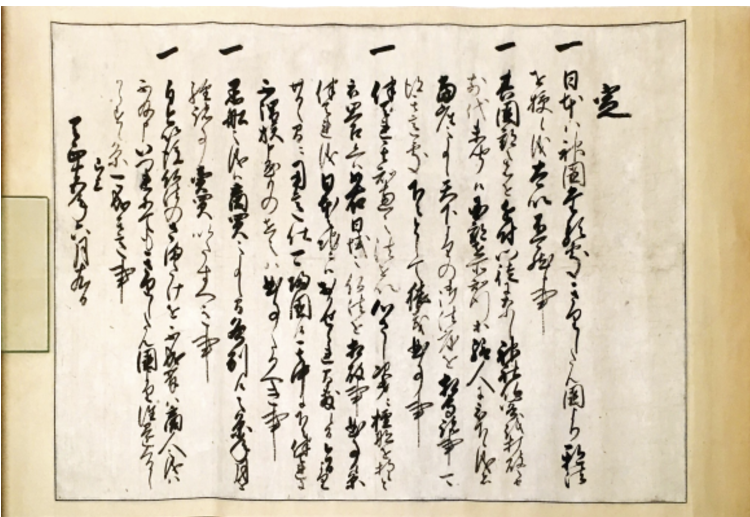 覚
一 日本ハ神国たる処きりしたん国より邪法
を授候儀太以不可然候事
一 其国郡之者を近付門徒になし神社仏閣を打破之
由前代未聞候国郡在所知行等給人に被下候儀者
当座之事候天下よりの御法度を相守諸事可
得其意処下々として猥義曲事事
一 伴天連其知恵之法を以心さし次第ニ檀那を持候と
被思召候へハ如右日域之仏法を相破事曲事候条
伴天連儀日本之地ニハおかせられ間敷候間今日より廿日
之間ニ用意仕可帰国候其中に下々伴天連に
不謂族申懸もの在之ハ曲事たるへき事
一 黒船之儀ハ商買之事候間各別候之条年月を
経諸事売買いたすへき事
一 自今以後仏法のさまたけを不成輩ハ商人之儀ハ
不及申いつれにてもきりしたん国より往還くるし
からす候条可成其意事
已上
天正十五年六月十九日